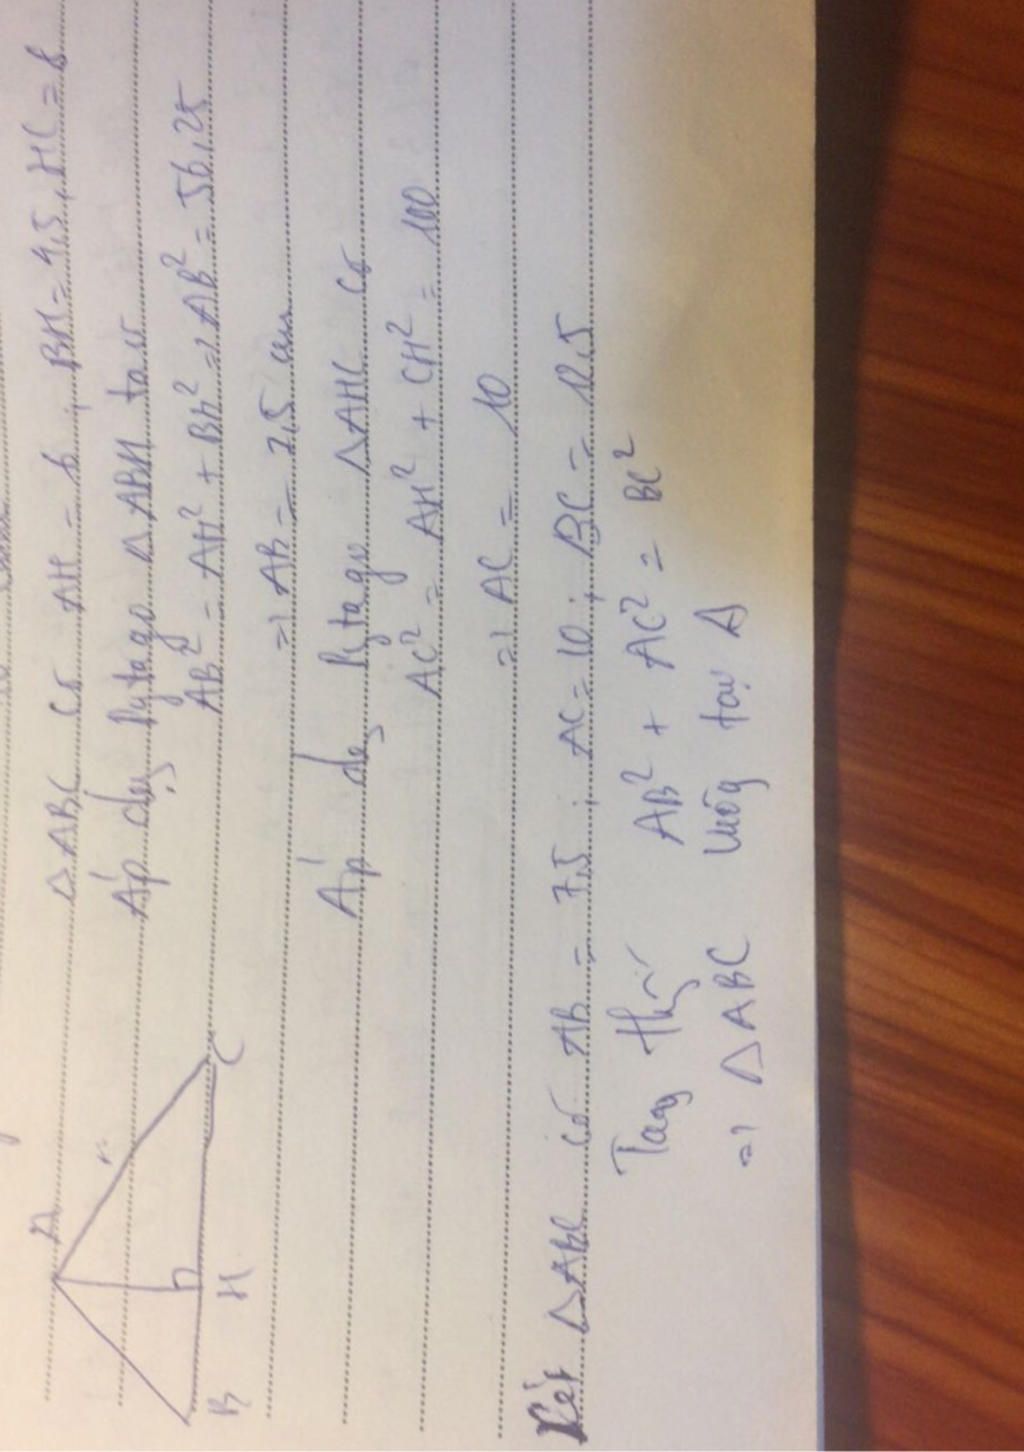 ΔABC có AH = 6, BH = 4,5, HC = 8
Áp dụg Pytago ΔABH ta có
AB² = AH² + Bh² => AB² = 56,25
=> AB = 7,5 cm
Áp dụg Pytago ΔAHC có
AC² = AH² + CH² = 100
=> AC = 10
A
B H C
Xét ΔABC có AB = 7,5 ; AC = 10 ; BC = 12,5
AB² + AC² = BC²
=> ΔABC vuôg tại A